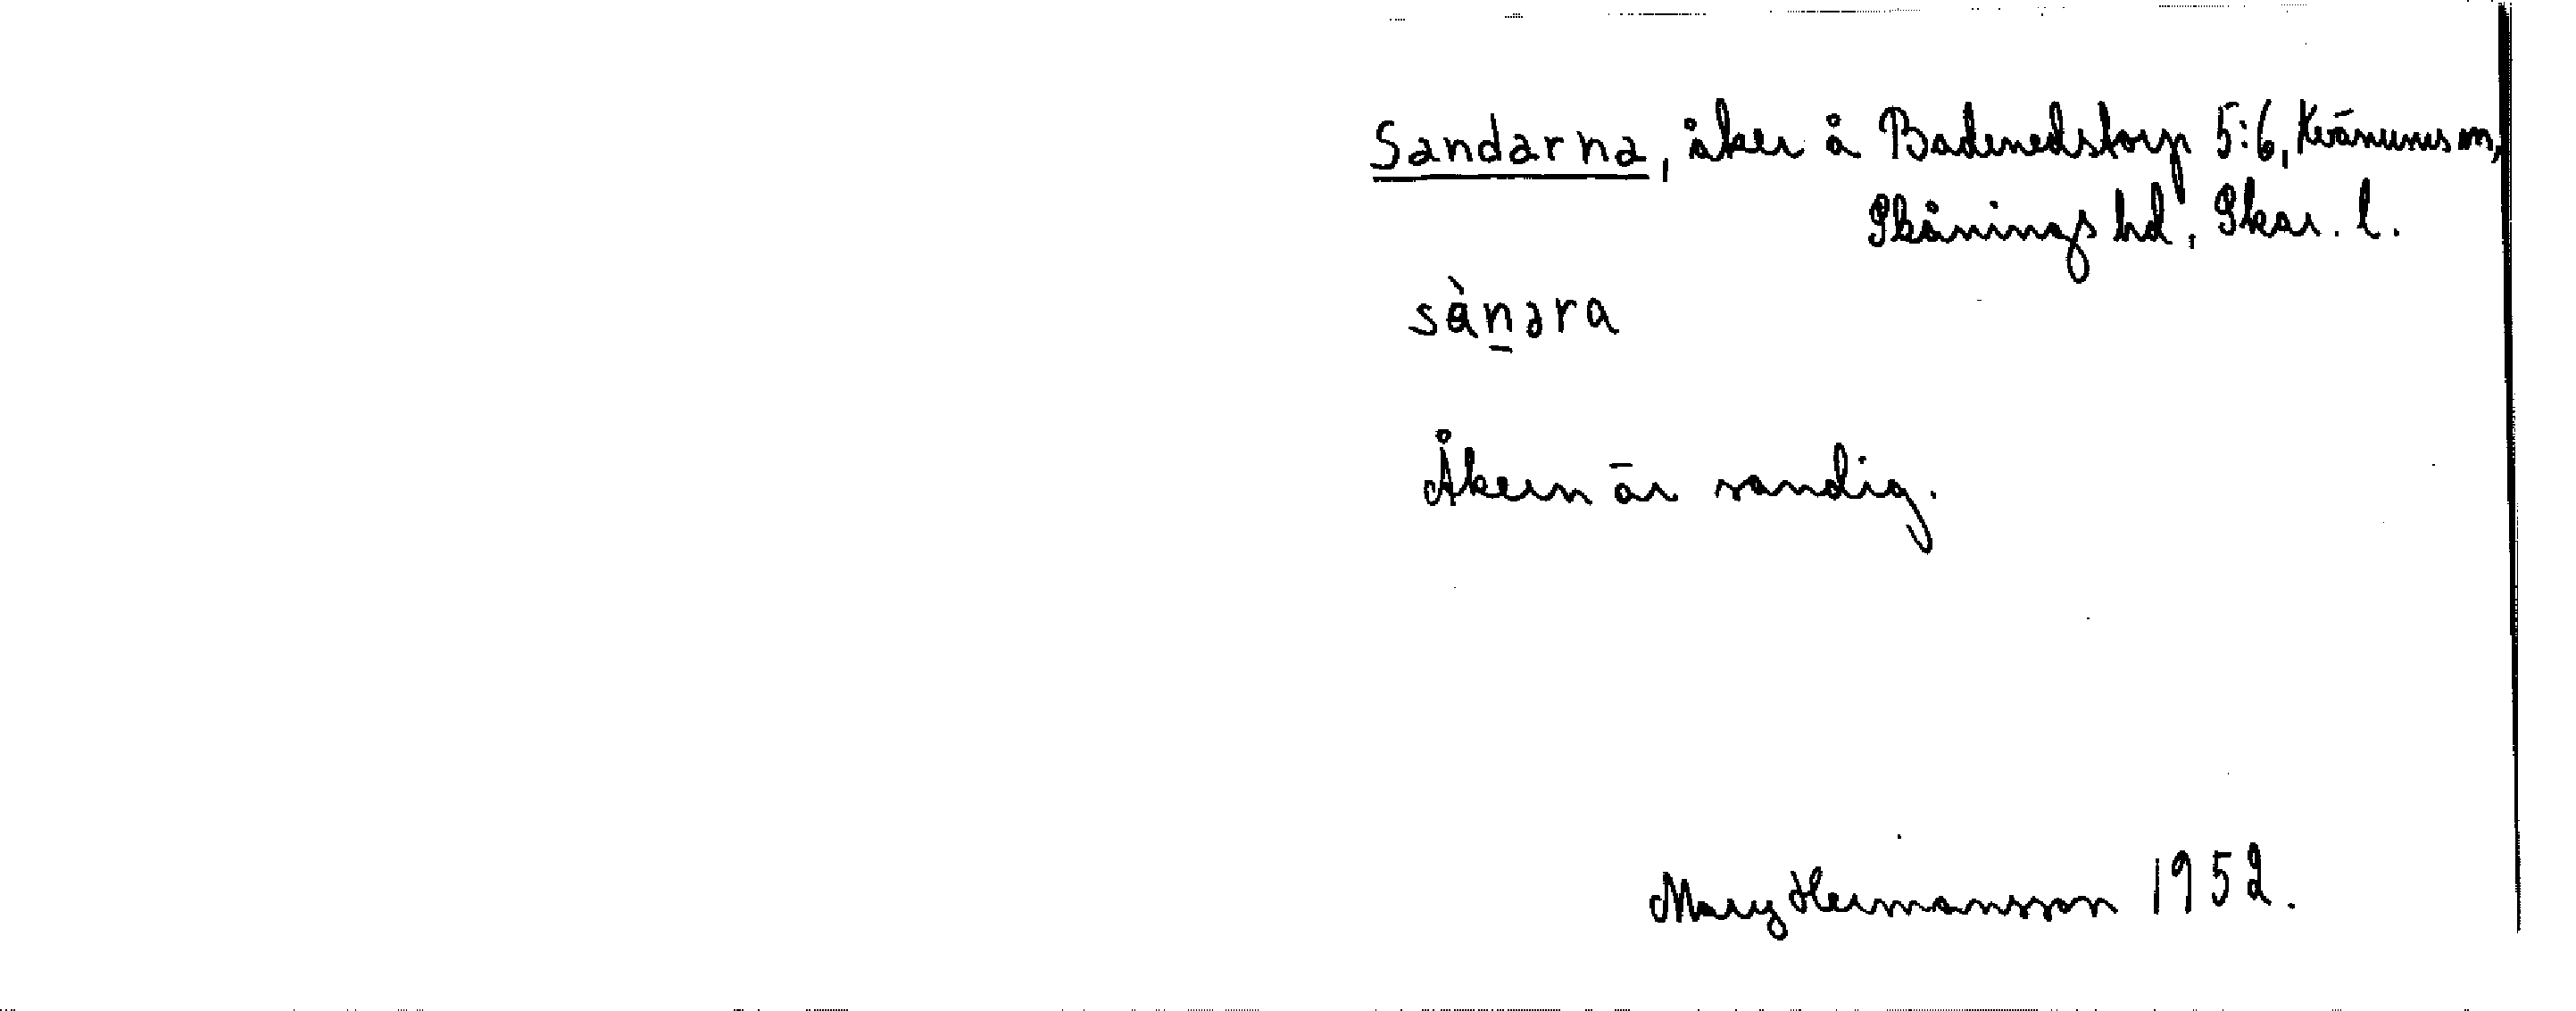 Sandarna, åker å Badenedstorp 5:6, Kvänums sn,
Skånings hd, Skar. l.
sàn̠əra
Åkern är sandig.
Mary Hermansson 1952.